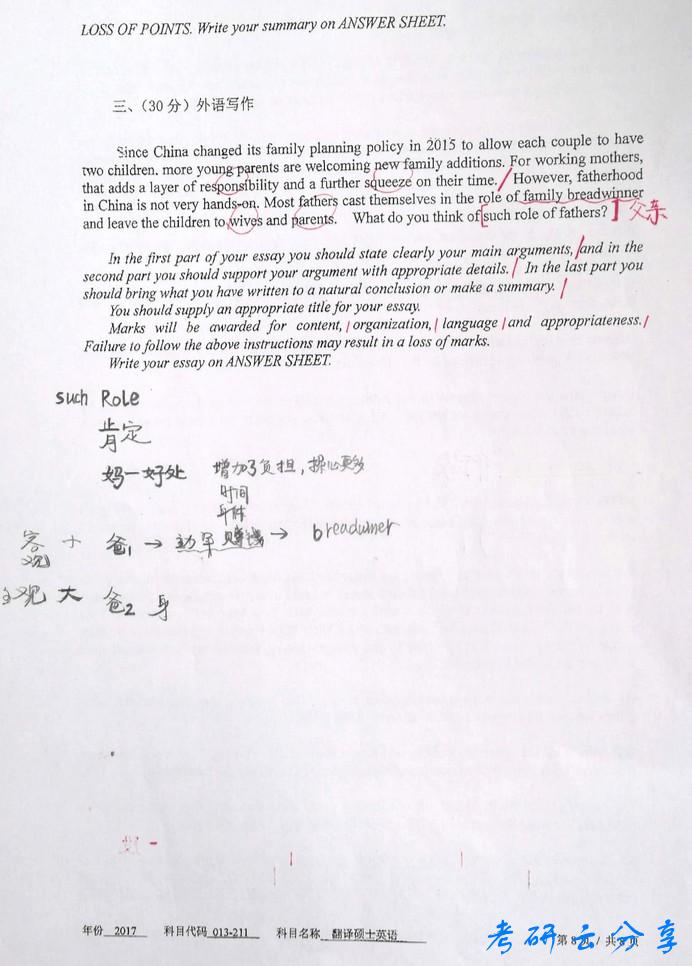 LOSS OF POINTS. Write your summary on ANSWER SHEET.
三、（30 分）外语写作
Since China changed its family planning policy in 2015 to allow each couple to have
two children. more young parents are welcoming new family additions. For working mothers,
that adds a layer of responsibility and a further squeeze on their time. However, fatherhood
in China is not very hands-on. Most fathers cast themselves in the role of family breadwinner
and leave the children to wives and parents. What do you think of such role of fathers? 父亲
In the first part of your essay you should state clearly your main arguments, and in the
second part you should support your argument with appropriate details. In the last part you
should bring what you have written to a natural conclusion or make a summary.
You should supply an appropriate title for your essay.
Marks will be awarded for content, organization, language and appropriateness.
Failure to follow the above instructions may result in a loss of marks.
Write your essay on ANSWER SHEET.
such Role
肯定
妈一好处 增加了负担，操心更多
时间
身体
客观 爸1 → 赚钱 → breadwinner
主观 大 爸2 身
年份 2017 科目代码 013-211 科目名称 翻译硕士英语 第 8 页 / 共 8 页
考研云分享